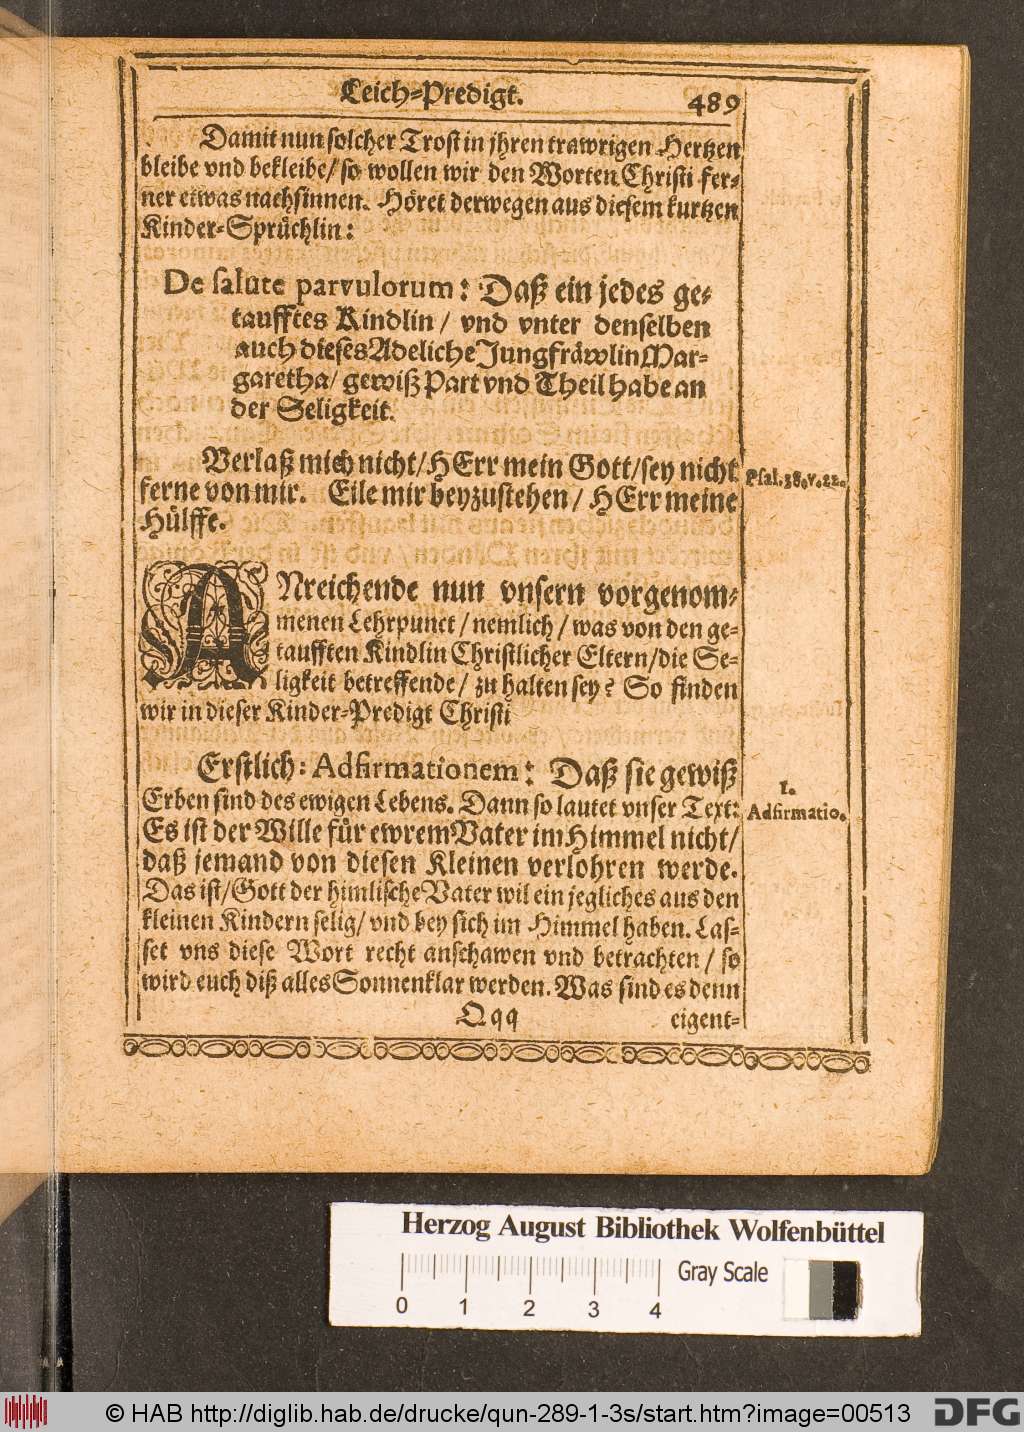 Leich-Predigt. 489
Damit nun solcher Trost in jhren trawrigen Hertzen
bleibe vnd bekleibe/ so wollen wir den Worten Christi fer-
ner etwas nachsinnen. Höret derwegen aus diesem kurtzen
Kinder-Sprüchlin:
De salute parvulorum: Daß ein jedes ge-
taufftes Kindlin / vnd vnter denselben
auch dieses Adeliche Jungfräwlin Mar-
garetha/ gewiß Part vnd Theil habe an
der Seligkeit.
Verlaß mich nicht/ HErr mein Gott/ sey nicht
ferne von mir. Eile mir beyzustehen / HErr meine
Hülffe.
Psal.38.v.22.
ANreichende nun vnsern vorgenom-
menen Lehrpunct / nemlich / was von den ge-
taufften Kindlin Christlicher Eltern/ die Se-
ligkeit betreffende/ zu halten sey? So finden
wir in dieser Kinder-Predigt Christi
Erstlich: Adfirmationem: Daß sie gewiß
Erben sind des ewigen Lebens. Dann so lautet vnser Text:
Es ist der Wille für ewrem Vater im Himmel nicht/
daß jemand von diesen Kleinen verlohren werde.
Das ist/ Gott der himlische Vater wil ein jegliches aus den
kleinen Kindern selig/ vnd bey sich im Himmel haben. Las-
set vns diese Wort recht anschawen vnd betrachten / so
wird euch diß alles Sonnenklar werden. Was sind es denn
1.
Adfirmatio.
Qqq eigent-
Herzog August Bibliothek Wolfenbüttel
0 1 2 3 4
Gray Scale
© HAB http://diglib.hab.de/drucke/qun-289-1-3s/start.htm?image=00513
DFG